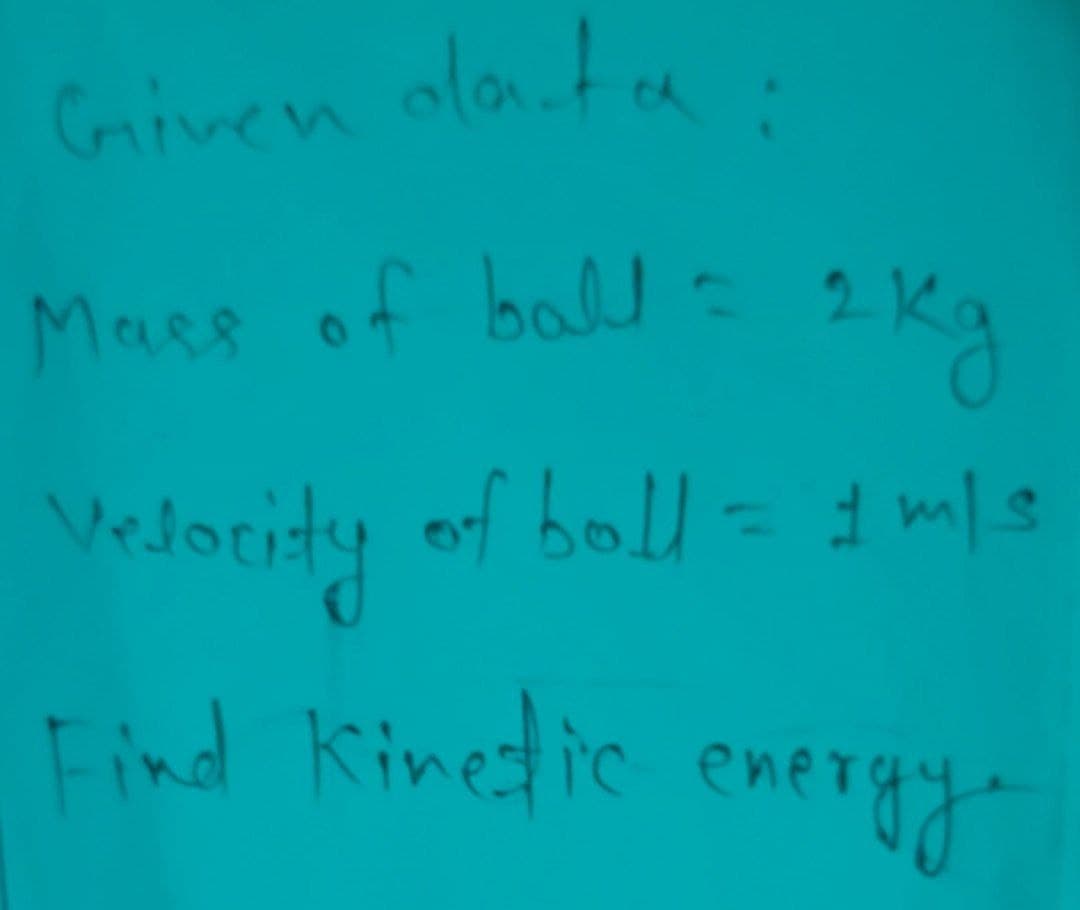 Given data :
Mass of ball = 2 Kg
Velocity of ball = 1 m/s
Find Kinetic energy.